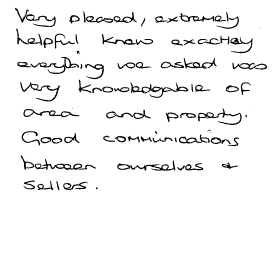 Very pleased, extremely
helpful knew exactley
everything we asked was
very knowledgable of
area and property.
Good communications
between ourselves &
sellers.